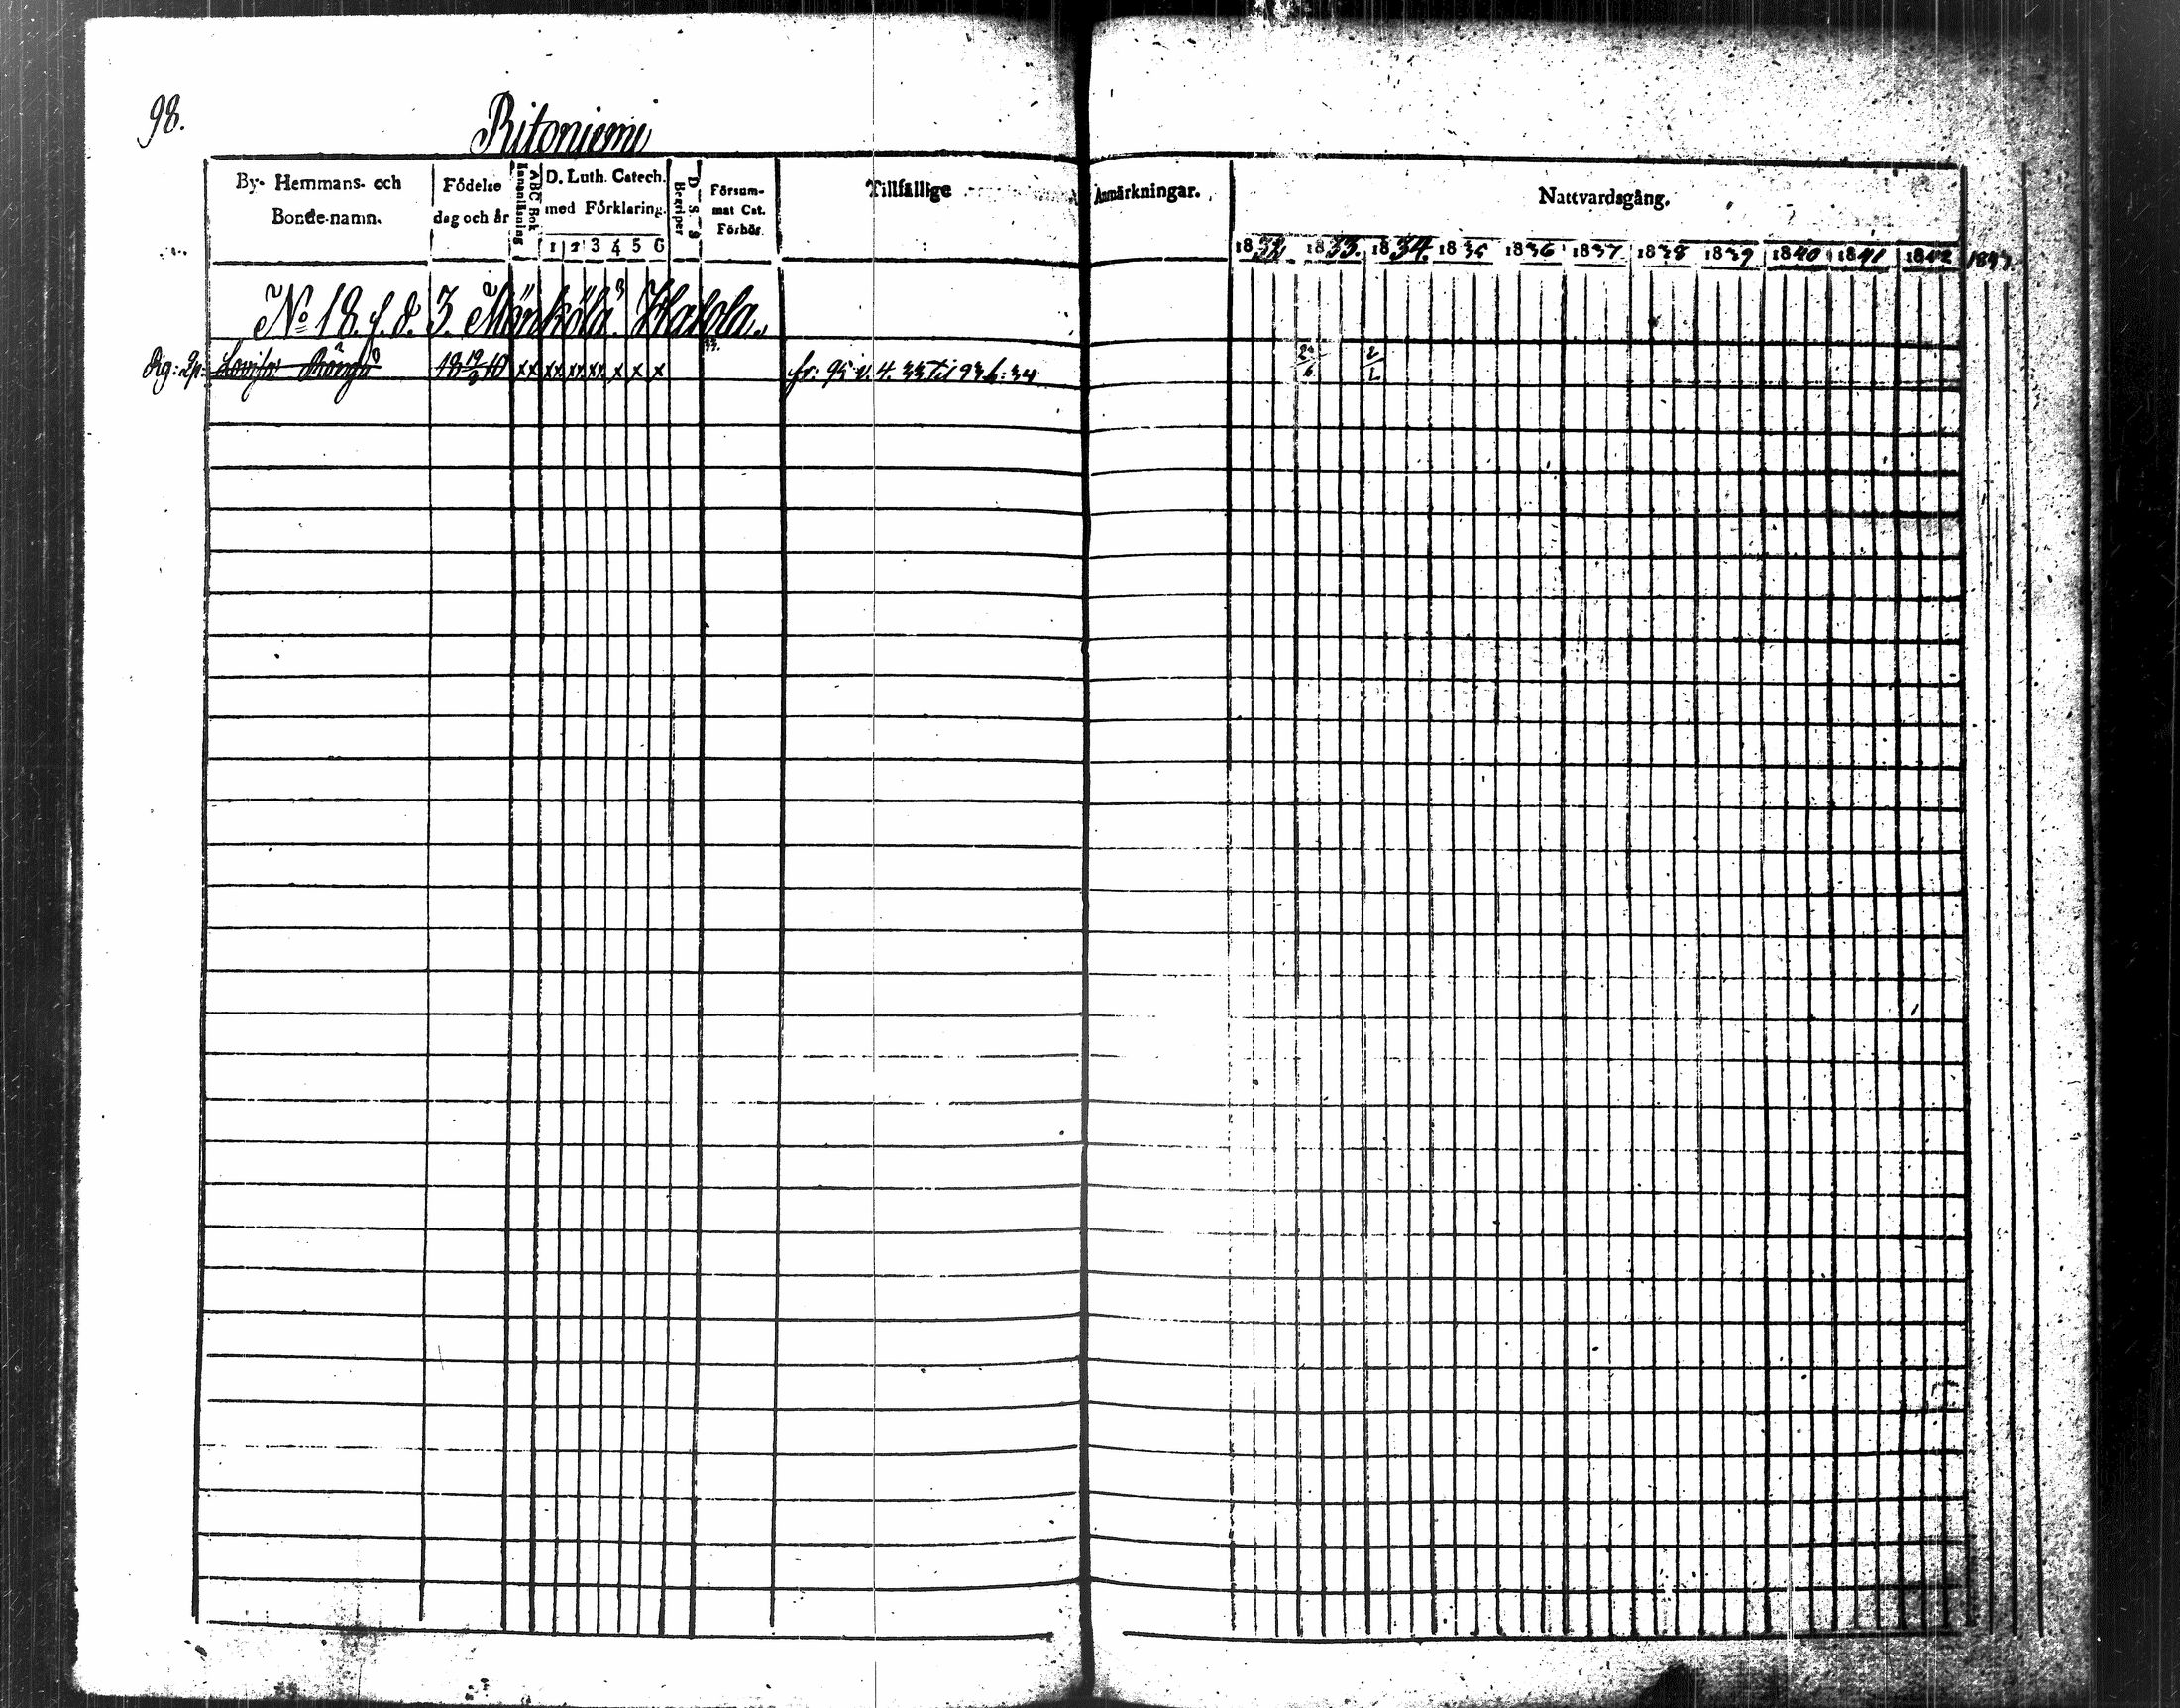 98.
Ritoniemi
By- Hemmans- och Bonde-namn.
Födelse dag och år
Innanläsning
ABC Bok
D. Luth. Catech. med Förklaring.
1 2 3 4 5 6
D. S. S.
Begriper
Försum- mat Cat. Förhör.
Tillfällige Anmärkningar.
Nattvardsgång.
1832. 1833. 1834. 1835 1836 1837 1838 1839 1840 1841 1842 1843.
No 18. f. d. 3. Halola.
33.
Pig: Lovisa 18 19/3 10 xx xx xx xx x x x fr: 95 v. 4. 33 Til 93. 6: 34